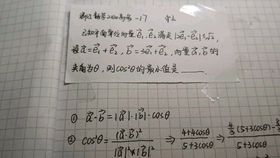 浙江 2020高考 -17
已知平面单位向量 e₁, e₂ 满足 |2e₁-e₂| ≤ √2,
设 a = e₁+e₂, b = 3e₁+e₂, 向量 a, b 的
夹角为θ, 则 cos²θ 的最小值是
① a·b = |a|·|b|·cosθ
② cos²θ = (a·b)² / |a|²×|b|² ⇒ 4+4cosθ / 5+3cosθ ⇒ (5+3cosθ) / 5+3cosθ